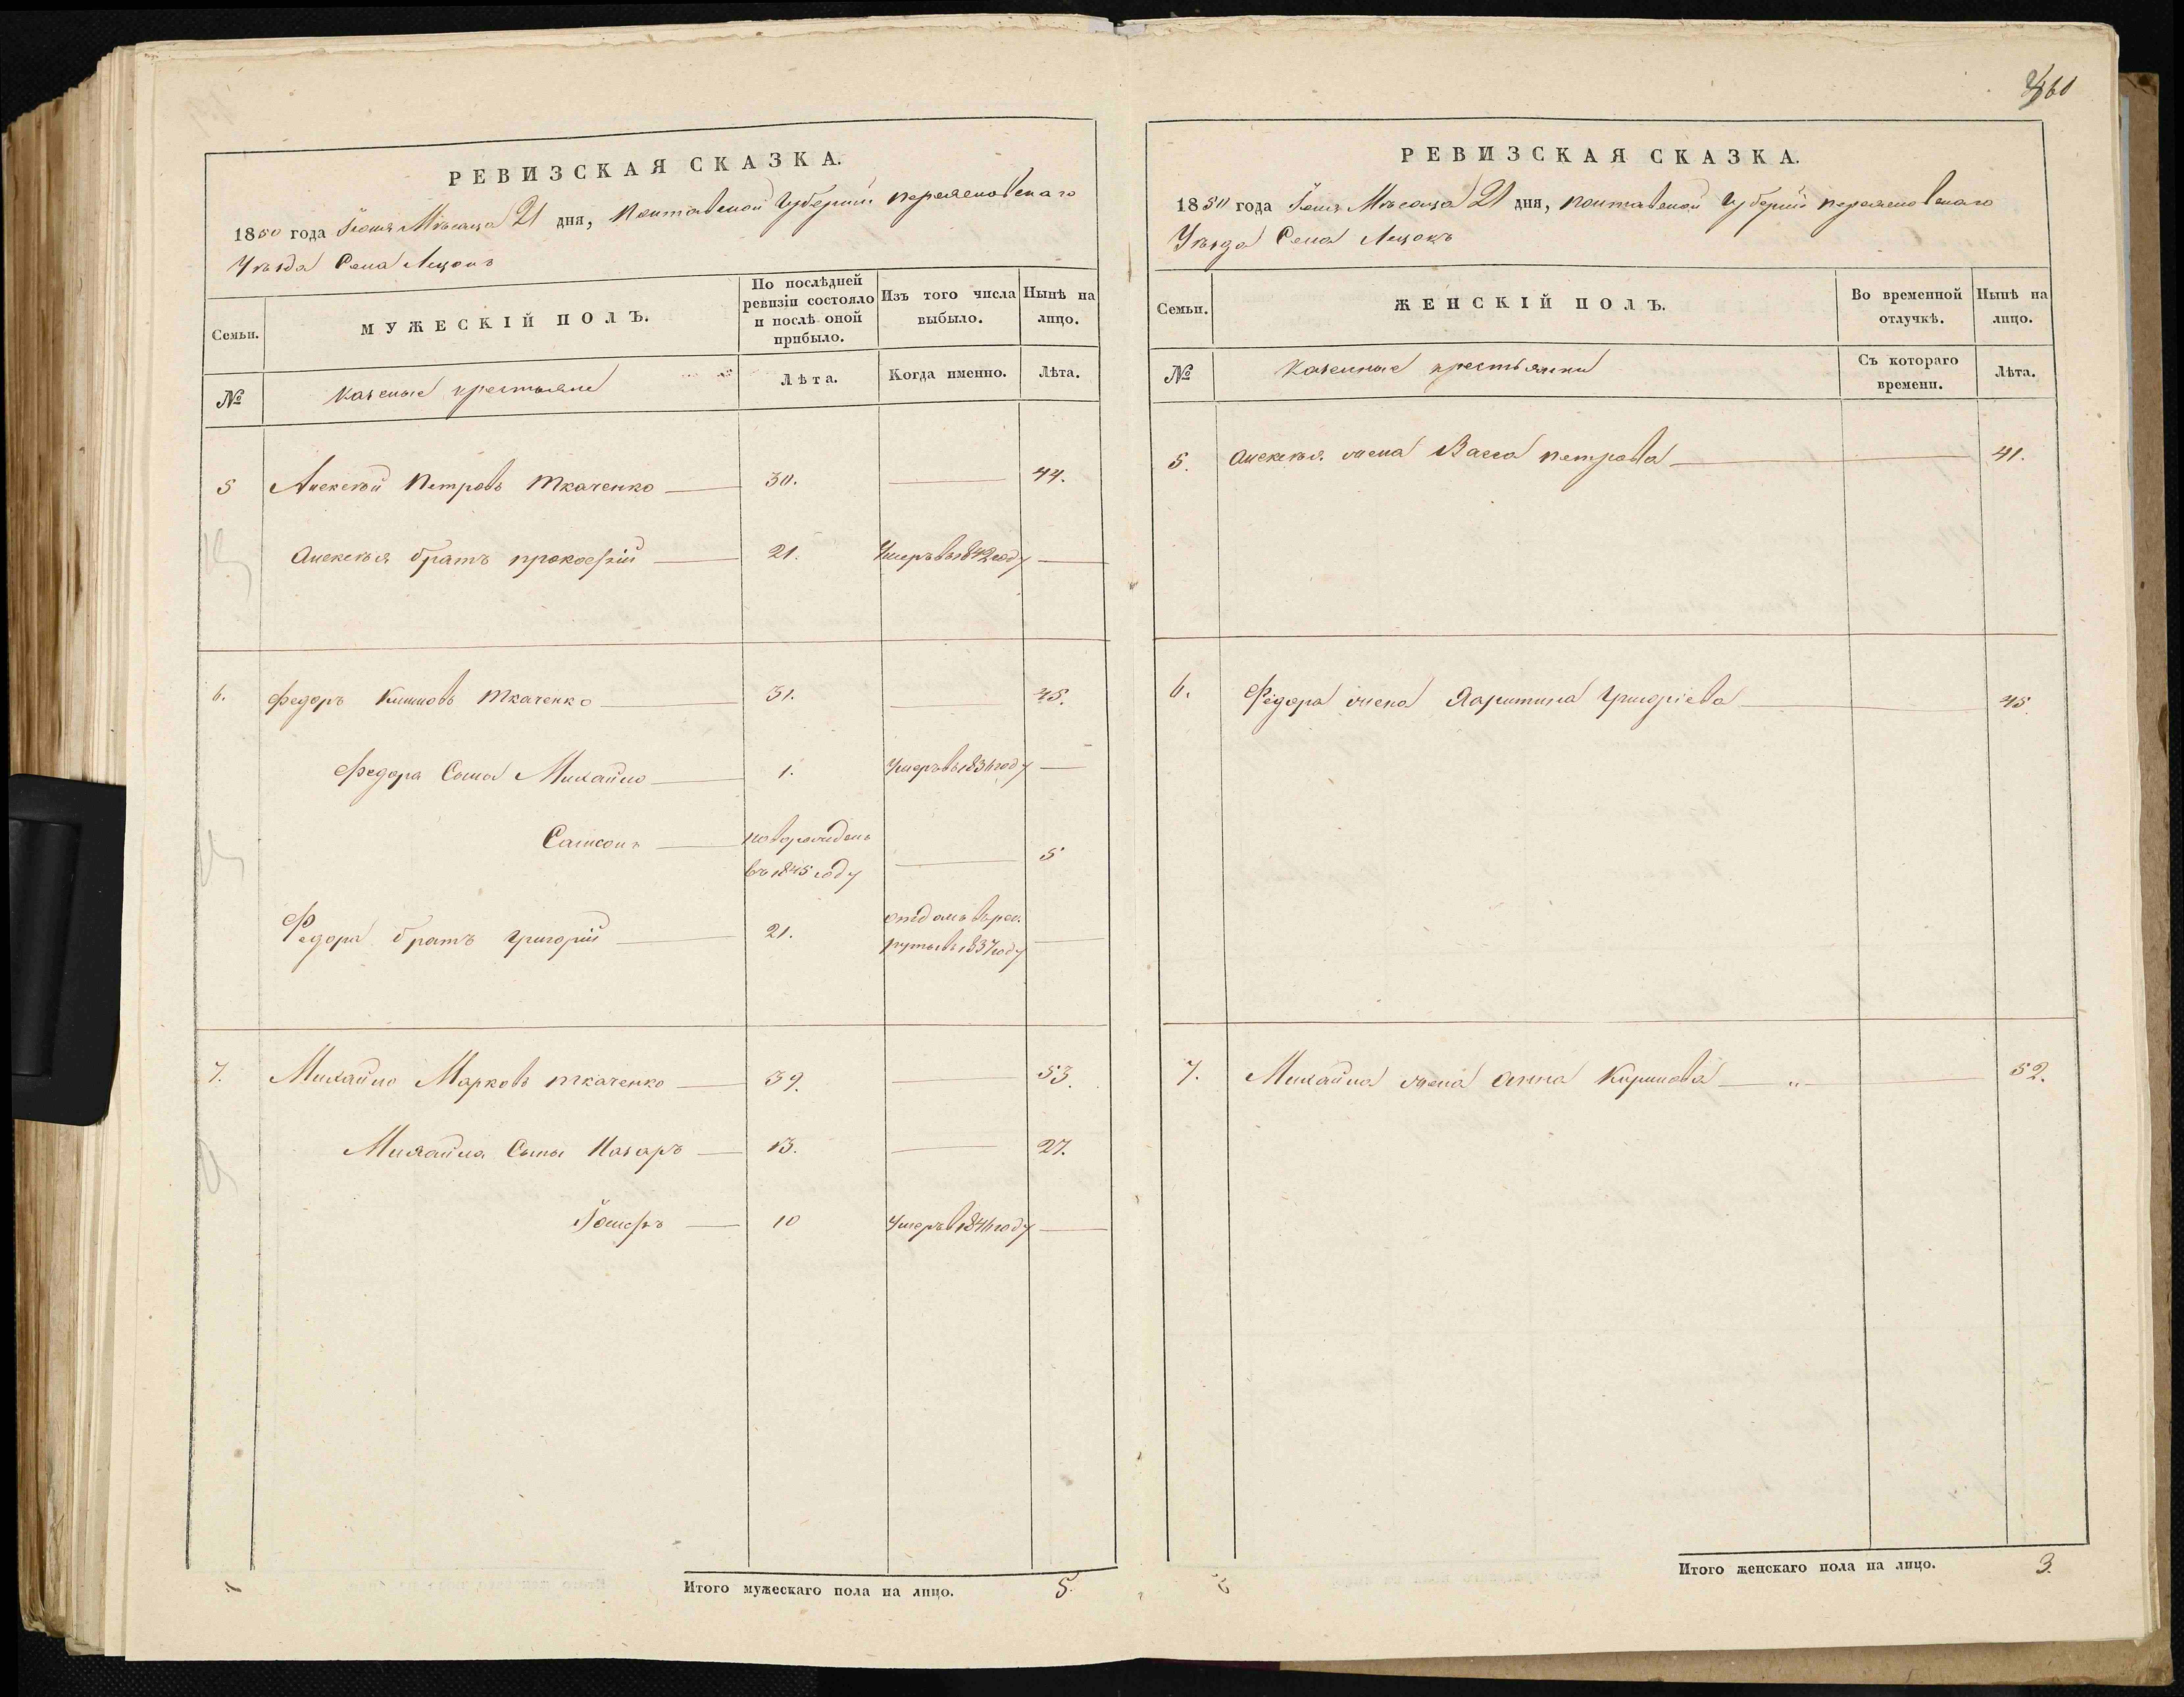 460
РЕВИЗСКАЯ СКАЗКА.
1850 года Іюня Мѣсяца 21 дня, Полтавской Губерніи переяславскаго
Уѣзда Села Лецокъ
Семьи.
МУЖЕСКІЙ ПОЛЪ.
По послѣдней ревизіи состояло и послѣ оной прибыло.
Изъ того числа выбыло.
Нынѣ на лицо.
№
Казеные крестьяне
Лѣта.
Когда именно.
Лѣта.
5 Алексѣй Петровъ Ткаченко 30. 44.
Алексѣя братъ прокофій 21. Умеръ въ 1842 году
6. Федоръ Климовъ Ткаченко 31. 45.
Федора Сына Михайло 1. Умеръ въ 1836 году
Самсонъ новорожденъ
въ 1845 году 5
Федора братъ Григорій 21. отданъ въ рек
руты въ 1837 году
7. Михайло Марковъ Ткаченко 39. 53.
Михайла Сыны Назаръ 13. 27.
Іосифъ 10 Умеръ в 1846 году
Итого мужескаго пола на лицо. 5.
РЕВИЗСКАЯ СКАЗКА.
1850 года Іюня Мѣсяца 21 дня, Полтавской Губерніи переяславскаго
Уѣзда Села Лецокъ
Семьи.
ЖЕНСКІЙ ПОЛЪ.
Во временной отлучкѣ.
Нынѣ на лицо.
№
Казенные крестьянки
Съ котораго времени.
Лѣта.
5. Алексѣя жена Васса петрова 41.
6. Федора жена Григоріева 45
7. Михайла жена анна Кирилова 52.
Итого женскаго пола на лицо. 3.